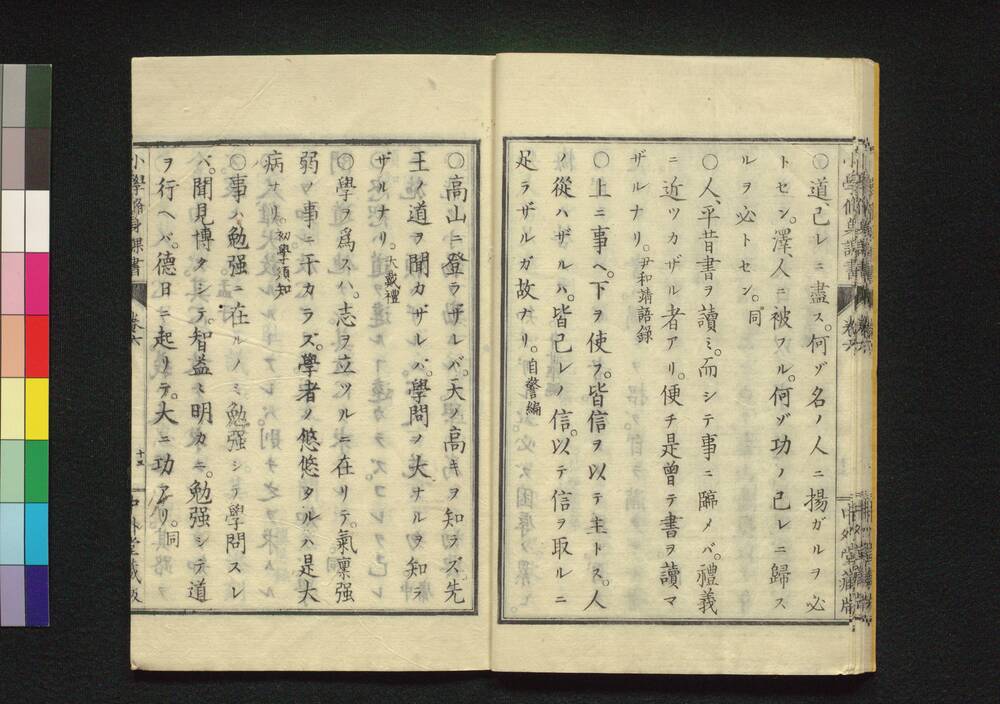 ○道、己レニ盡ス。何ゾ名ノ人ニ揚ガルヲ必
トセン。澤、人ニ被フル。何ゾ功ノ己レニ歸ス
ルヲ必トセン。同
○人、平昔書ヲ讀ミ、而シテ事ニ臨メバ、禮義
ニ近ツカザル者アリ。便チ是曾テ書ヲ讀マ
ザルナリ。尹和靖語錄
○上ニ事ヘ、下ヲ使フ。皆信ヲ以テ主トス。人
ノ從ハザルハ、皆己レノ信、以テ信ヲ取ルニ
足ラザルガ故ナリ。自警編
○高山ニ登ラザレバ、天ノ高キヲ知ラズ。先
王ノ道ヲ聞カザレバ、學問ノ大ナルヲ知ラ
ザルナリ。大戴禮
○學ヲ爲スハ、志ヲ立ツルニ在リテ、氣稟強
弱ノ事ニ干カラズ。學者ノ悠悠タルハ是大
病ナリ。初學須知
○事ハ勉强ニ在ルノミ、勉强シテ學問スレ
バ、聞見博クシテ、智益ミ明カニ。勉强シテ道
ヲ行ヘバ、德日ニ起リテ、大ニ功アリ。同
卷六
十五